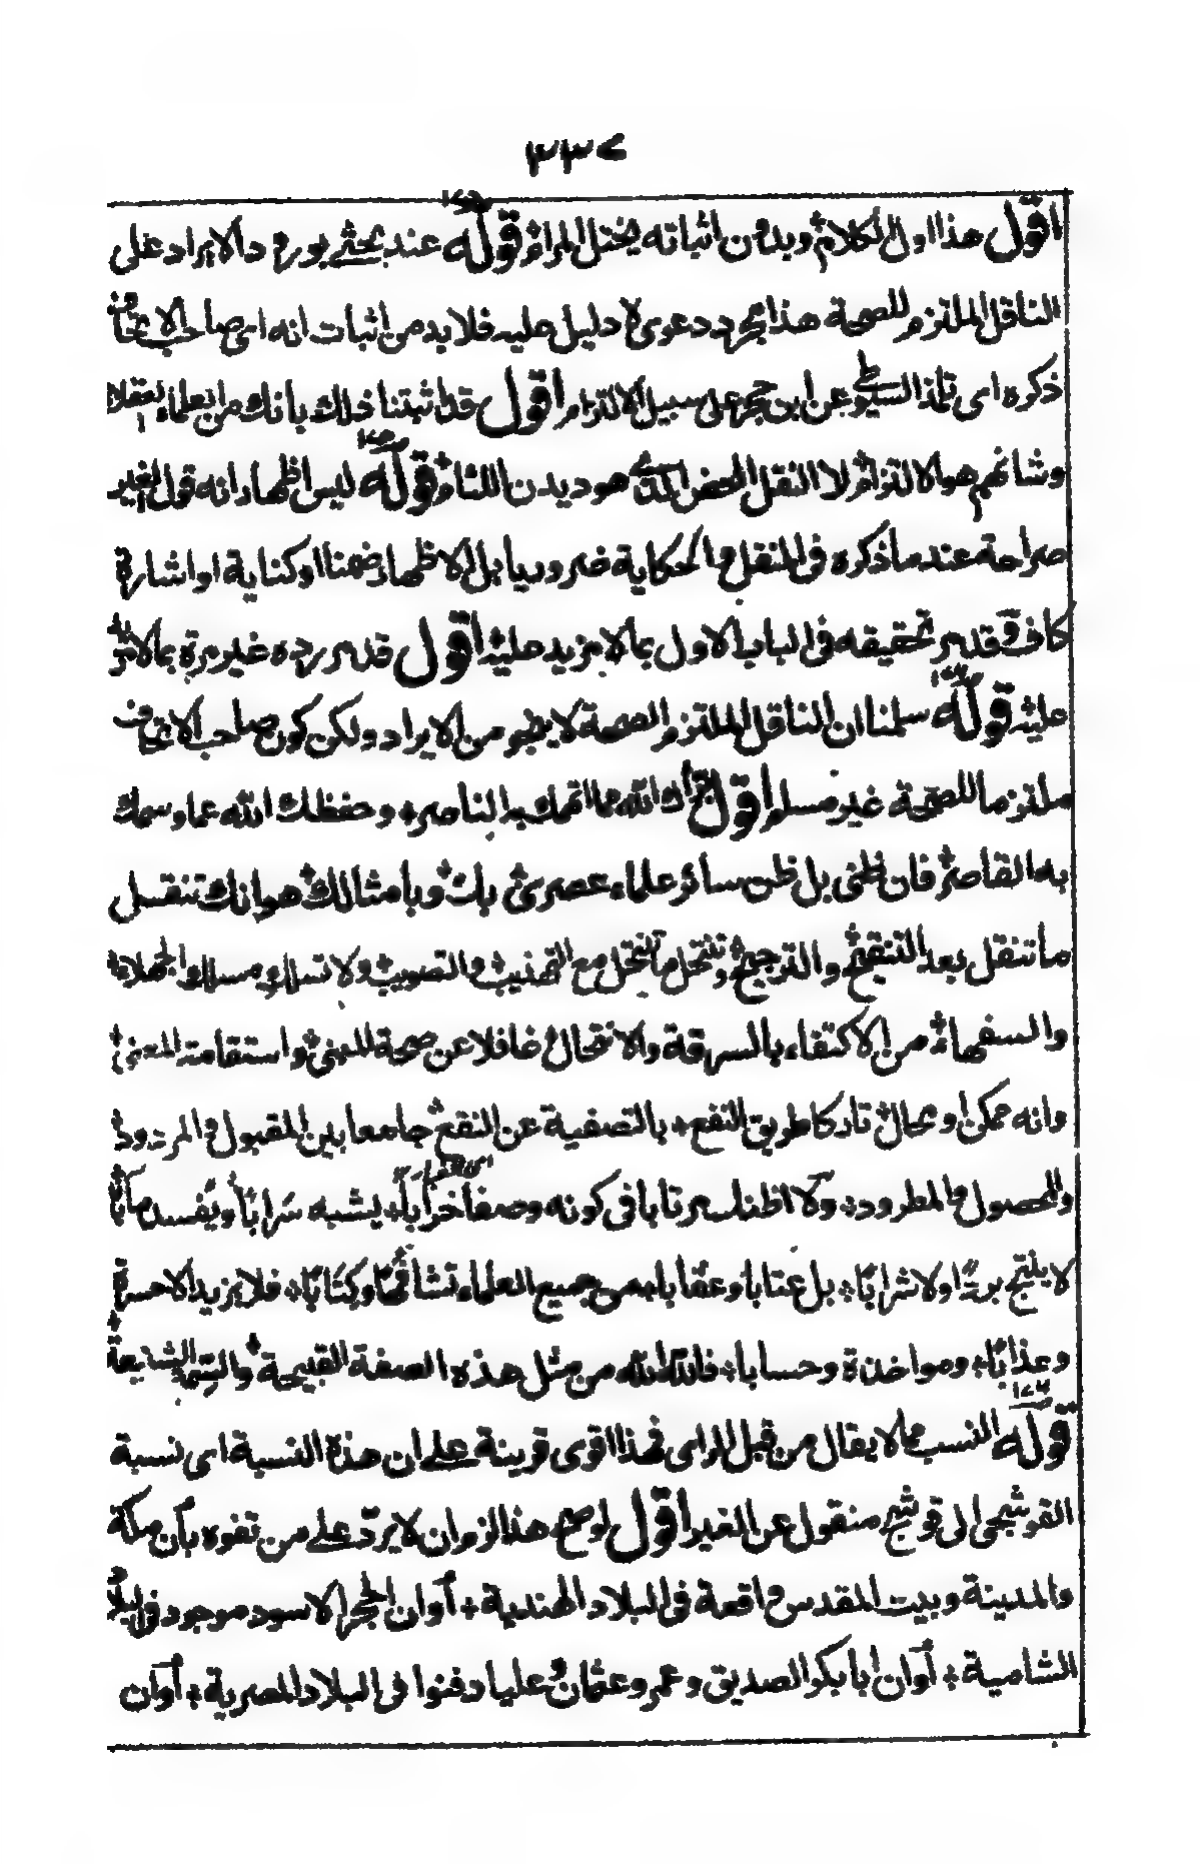 ٣٣٧
اقول هذا اول الكلام وبدون اثباته يختل المرام قوله عند بحثي بورود الايراد على
الناقل الملتزم للصحة هذا مجرد دعوى لا دليل عليه فلا بد من اثبات انه اى صاحب الاتحاف
ذكره اى تلمذ السيوطي عن ابن حجر على سبيل الالتزام اقول قد اثبتنا ذلك بانك من العلماء العقلاء
وشانهم هو الالتزام لا النقل المحض الذي هو ديدن اللئام قوله ليس اظهار انه قول الغير
صراحة عند ما ذكره فى المنقل والحكاية ضروريا بل الاظهار ضمنا او كناية او اشارة
كاف وقد مر تحقيقه فى الباب الاول بما لا مزيد عليه اقول قد مر رده غير مرة بما لا مزيد
عليه قوله سلمنا ان الناقل الملتزم الصحة لا ينجو من الايراد ولكن كون صاحب الاتحاف
ملتزما للصحة غير مسلم اقول نجاك الله مما اتهمك به الناصر وحفظك الله عما وسمك
به القاصر فان ظنى بل ظن سائر علماء عصرى بك وبامثالك هو انك تنقل
ما تنقل بعد التنقيح والترجيح وتنتحل ما تنتحل مع التهذيب والتصويب ولا تسلك مسالك الجهلاء
والسفهاء من الاكتفاء بالسرقة والانتحال غافلا عن صحة المبنى واستقامة المعنى
وانه ممكن او محال تاركا طريق النفع بالتصفية عن النقع جامعا بين المقبول والمردود
والمحصول والمطرود ولا اظنك مرتابا فى كونه وصفا خرابا يشبه سرابا ويفسد مآبا
لا ينتج بردا ولا شرابا بل عتابا وعقابا من جميع العلماء تشافها وكتابا فلا يزيد الا حسرة
وعذابا ومواخذة وحسابا فالله الله من مثل هذه الصفة القبيحة والشيمة الشنيعة
قوله النسب مما لا يقال من قبل الراى فهذا اقوى قرينة على ان هذة النسبة اى نسبة
القوشجى الى قوشج منقول عن الغير اقول لو صح هذا لزم ان لا يردّ على من تفوه بأن مكة
والمدينة وبيت المقدس واقعة فى البلاد الهندية أو ان الحجر الاسود موجود فى البلاد
الشامية أو ان ابا بكر الصديق وعمر وعثمان وعليا دفنوا فى البلاد المصرية أو ان